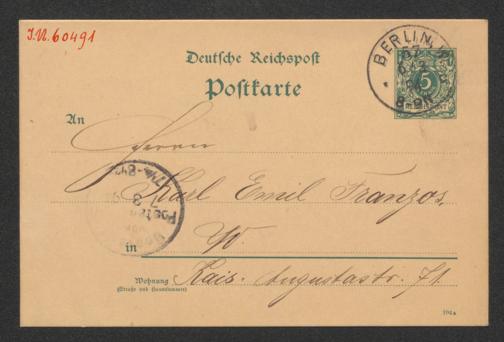 I.N. 60491
Deutsche Reichspost
Postkarte
BERLIN, W.
57
8-9N
5
An
Herrn
Karl Emil Franzos,
in W.
Wohnung Kais. Augustastr. 71.
(Straße und Hausnummer)